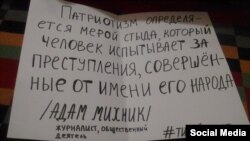 ПАТРИОТИЗМ ОПРЕДЕЛЯ-
ЕТСЯ МЕРОЙ СТЫДА, КОТОРЫЙ
ЧЕЛОВЕК ИСПЫТЫВАЕТ ЗА
ПРЕСТУПЛЕНИЯ, СОВЕРШЁН-
НЫЕ ОТ ИМЕНИ ЕГО НАРОДА
/АДАМ МИХНИК/
ЖУРНАЛИСТ, ОБЩЕСТВЕННЫЙ
ДЕЯТЕЛЬ
Social Media